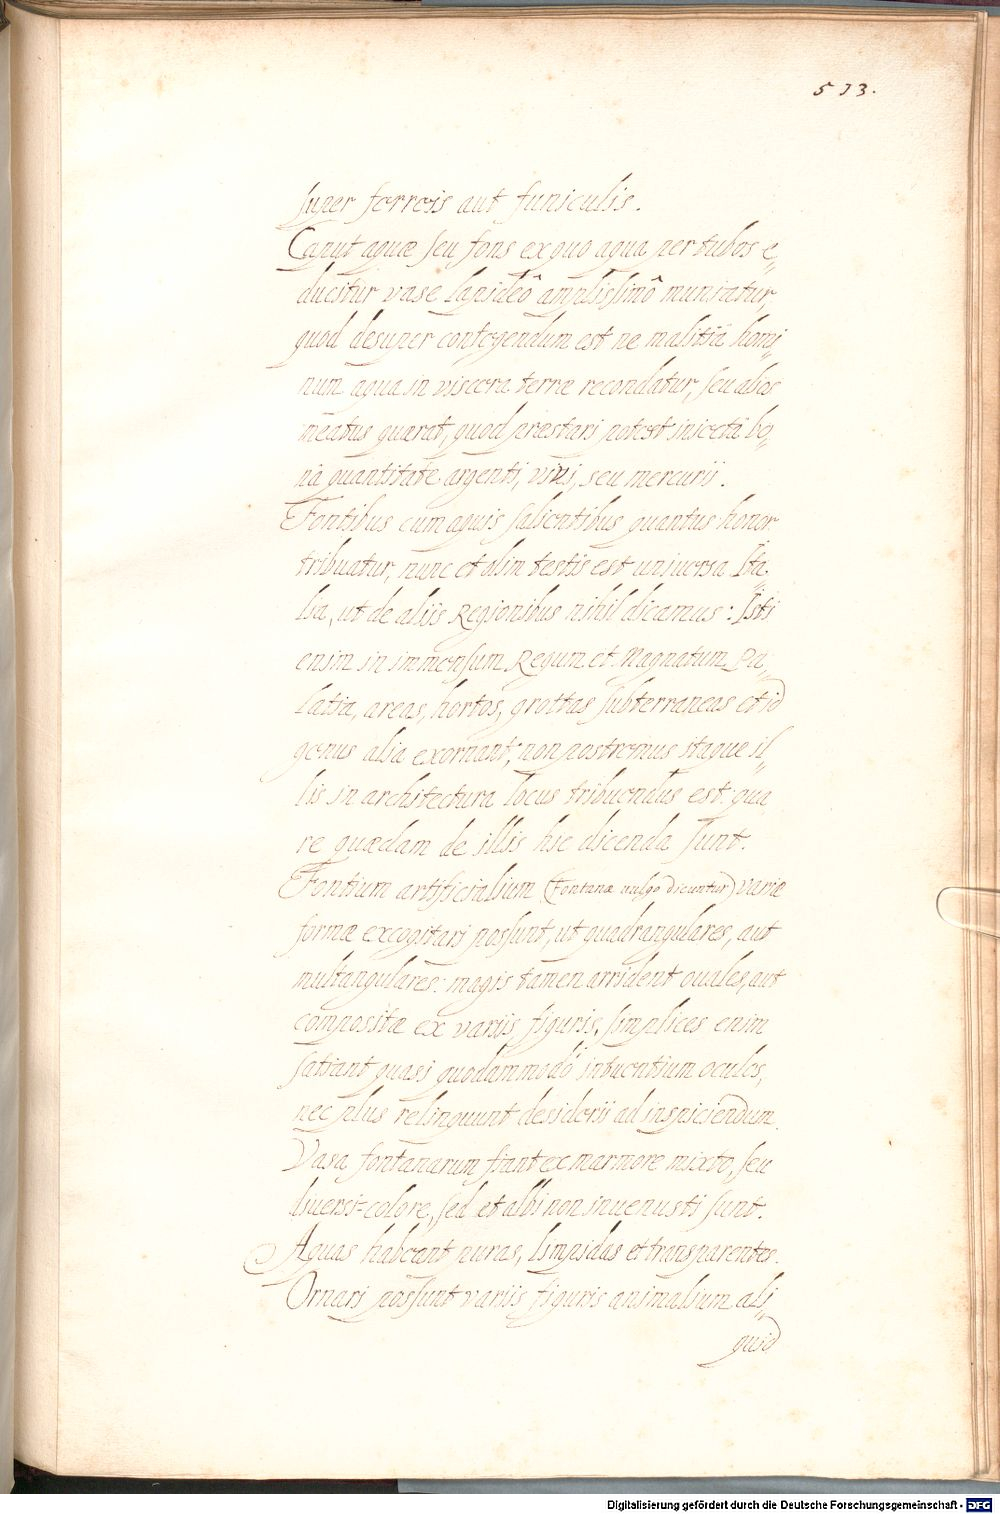 533.
super ferreis aut funiculis.
Caput aquæ seu fons ex quo aqua per tubos e,,
ducitur vase lapideô amplissimô muniatur,
quod desuper contegendum est ne malitiâ homi,,
num aqua in viscera terræ recondatur, seu alios
meatus quærat, quod præstari potest iniectâ bo,,
nâ quantitate argenti, vivi, seu mercurii.
Fontibus cum aquis salientibus quantus honor
tribuatur, nunc et olim testis est universa Ita,,
lia, ut de aliis Regionibus nihil dicamus: Isti
enim in immensum Regum et Magnatum Pa,,
latia, areas, hortos, grottas subterraneas et id
genus alia exornant; non postremus itaque il,,
lis in architectura locus tribuendus est: qua
re quædam de illis hic dicenda sunt.
Fontium artificialium (Fontanæ vulgo dicuntur) variæ
formæ excogitari possunt, ut quadrangulares, aut
multangulares: magis tamen arrident ovales, aut
compositæ ex variis figuris, simplices enim
satiant quasi quodammodò intuentium oculos,
nec plus relinquunt desiderii ad inspiciendum.
Vasa fontanarum fiant ex marmore mixto, seu
diversi=colore, sed et albi non invenusti sunt.
Aquas habeant puras, limpidas et transparentes.
Ornari possunt variis figuris animalium ali,,
quid
Digitalisierung gefördert durch die Deutsche Forschungsgemeinschaft - DFG